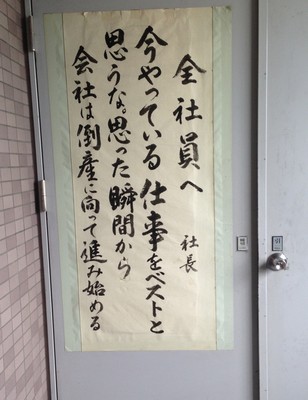 全社員へ
社長
今やっている仕事をベストと
思うな。思った瞬間から
会社は倒産に向って進み始める